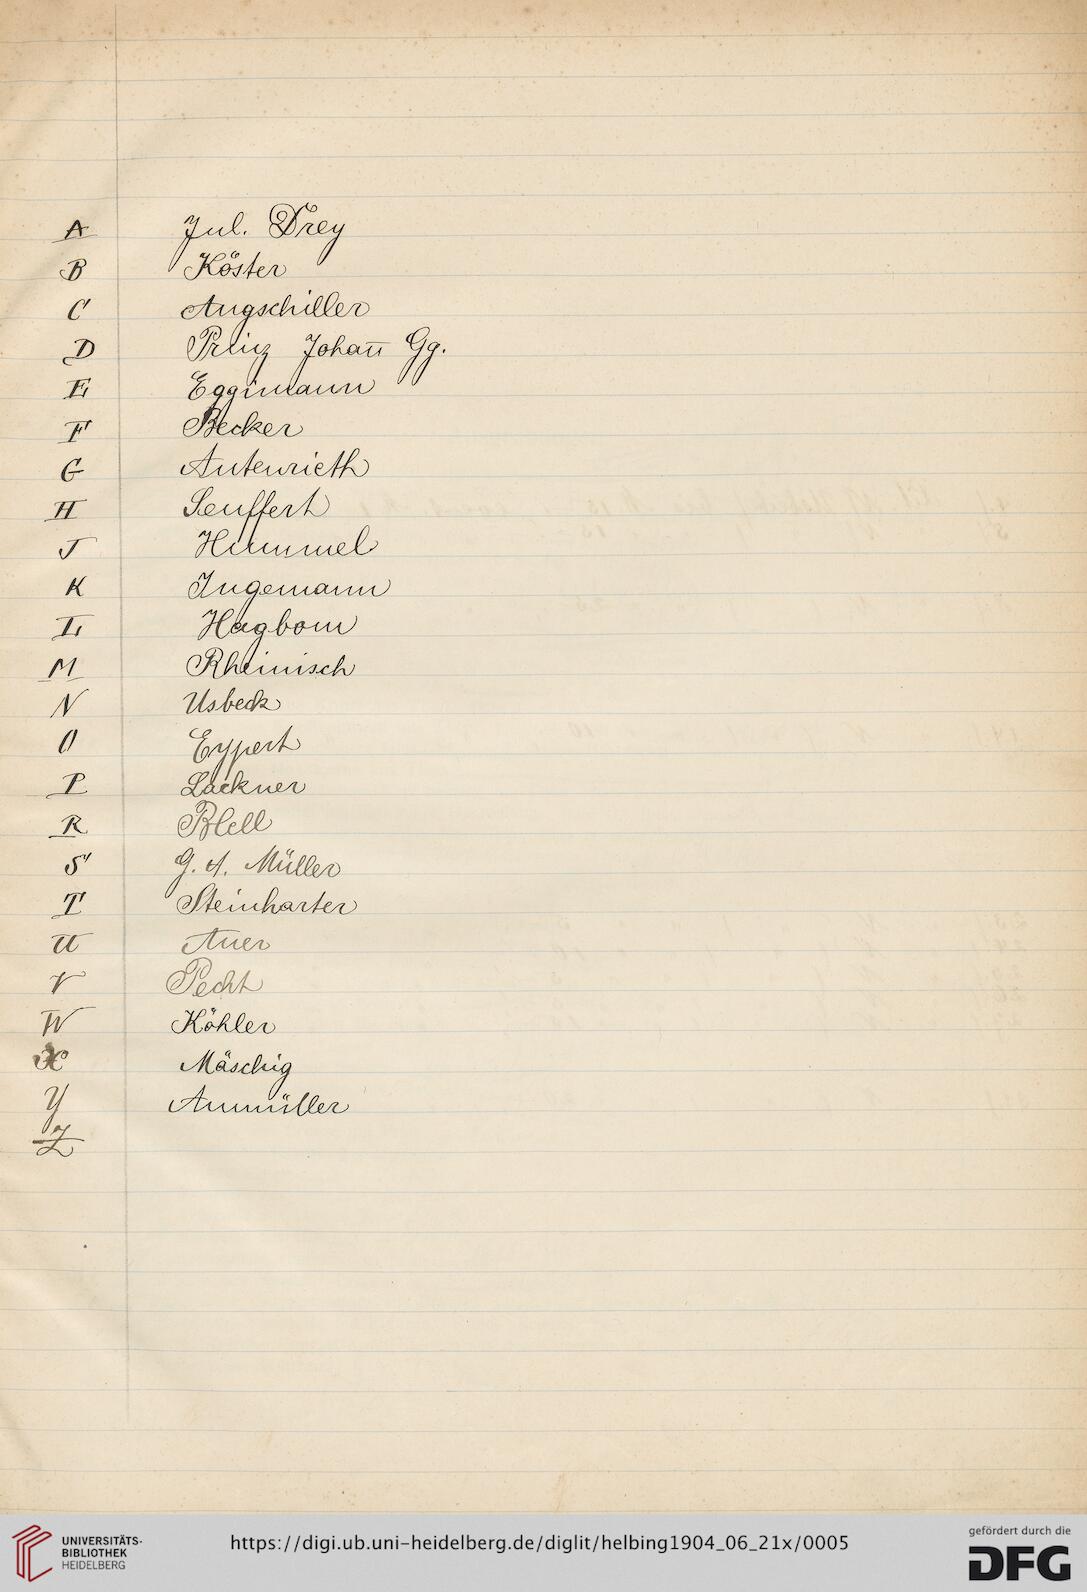 A Jul. Drey
B Köster
C Augschiller
D Prinz Johan̄ Gg.
E Eggimann
F Becker
G Autenrieth
H Seuffert
J Himmel
K Ingemann
L Hagbom
M Rheinisch
N Usbeck
O Eypert
P Lackner
R Blell
S G. A. Müller
T Steinharter
U Auer
V Pecht
W Köhler
X Mäschig
Y Ammüller
Z
UNIVERSITÄTS-
BIBLIOTHEK
HEIDELBERG
https://digi.ub.uni-heidelberg.de/diglit/helbing1904_06_21x/0005
gefördert durch die
DFG